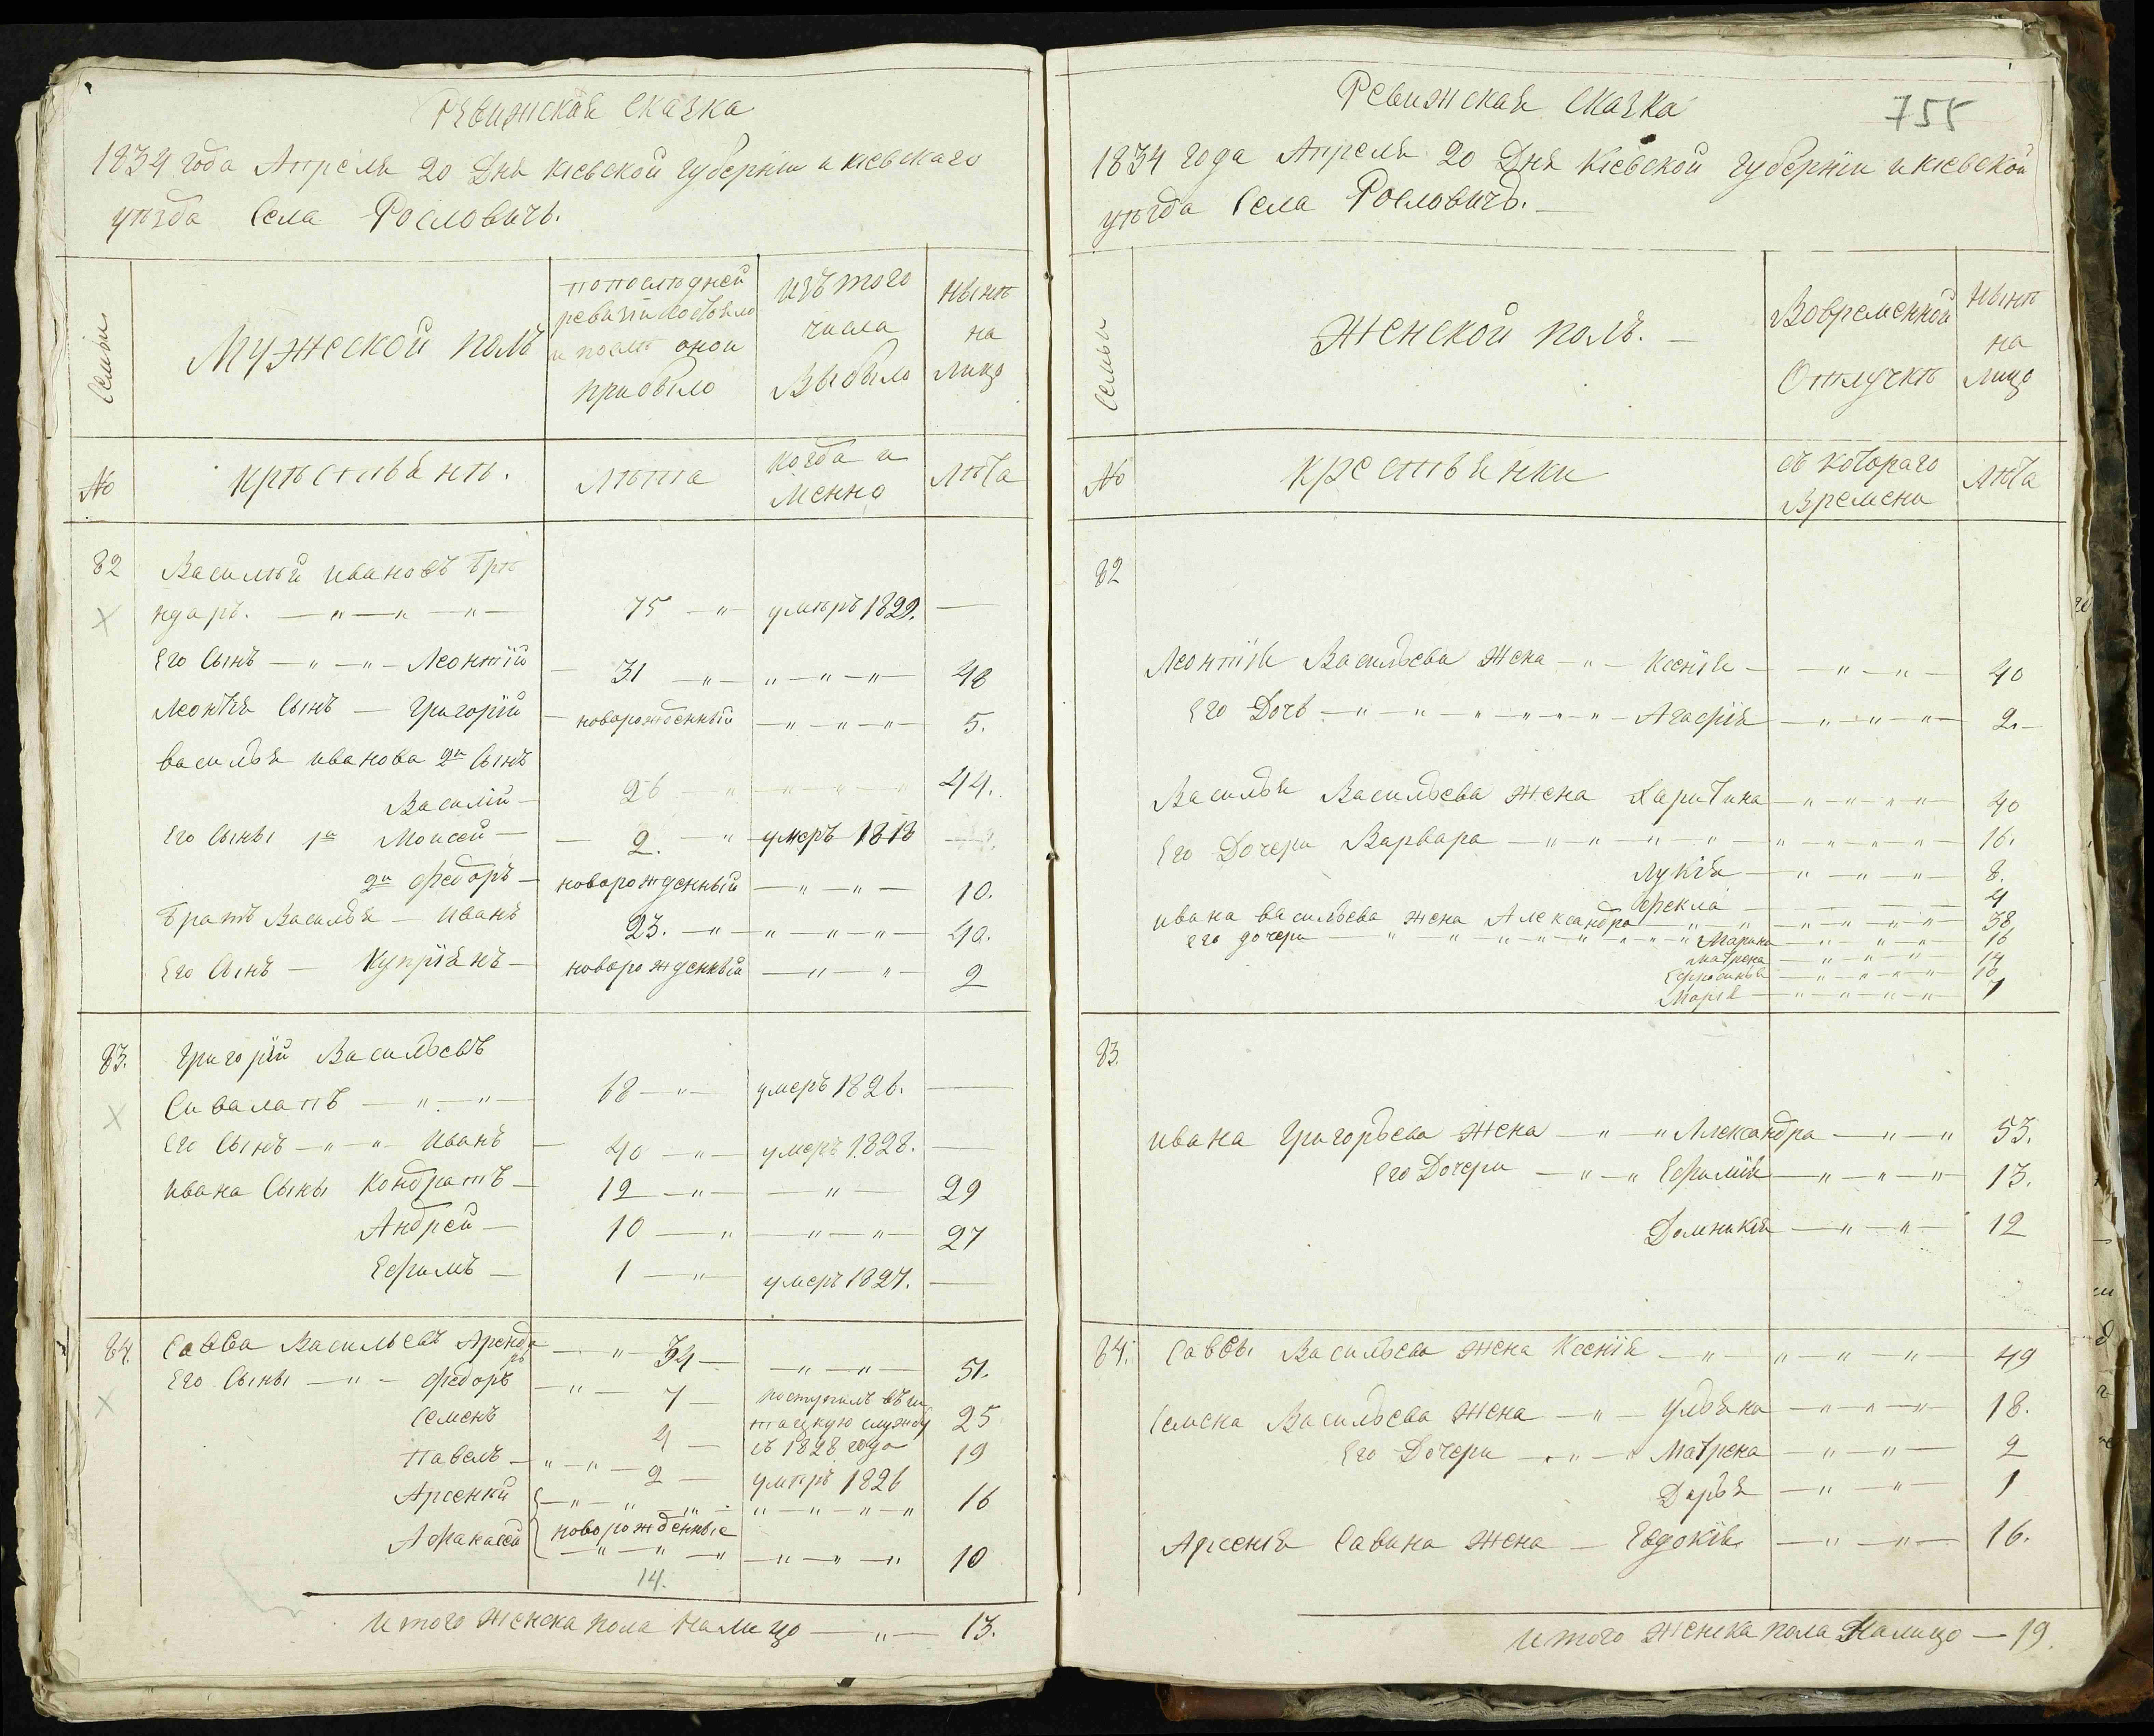 Ревижская Сказка
1834 года Апреля 20 Дня Киевской губернїи и киевскаго
уѣзда Села Рословичь.
Семьи
Мужеской полъ
попослѣдней
ревизїи состояло
и послѣ оной
прибыло
изъ того
числа
выбыло
нынѣ
на
лицо
№
крѣстьянѣ.
лѣта
когда и
менно
лѣта
82
Василѣй ивановъ Брѣ
ндаръ. — " — " — " —
75 — " — умѣръ 1829. —
Его Сынъ — " — " — Леонтїй — 31 — " — " — " — " — 48
Леонтїя Сынъ — Григорїй — новорожденный — " — " — " — 5.
васильѧ иванова 2й Сынъ
Василїй — 26 — " — " — " — " 44.
Его Сыны 1й Моисей — 2. — " — умеръ 1818 —
2й Федоръ — новорожденный — " — " — 10.
Братъ Василья — иванъ 23. — " — " — " — " — 40.
Его Сынъ — Купрїянъ — новорожденный — " — " — 2
83.
Григорїй Васильевъ
Сивалапъ — " — " — 68 — " — умеръ 1826. —
Его Сынъ — " — " Иванъ — 40 — " — умеръ 1828. —
Ивана Сыны Кондратъ — 12 — " — " — 29
Андрей — 10 — " — " — " — 27
Ефимъ — 1 — " — умеръ 1827. —
84.
Савва Васильевъ Аренда
ръ — " — 34 — " — " — 51.
Его Сыны — " — Федоръ — " — 7 — поступилъ въ ш
Семенъ 4 — тацкую службу 25
съ 1828 года
Павелъ — " — " — 2 — умѣръ 1826 19
Арсенїй — " — " — " — " — " — " — " 16
новорожденные
Афанасей — " — " — " — " — " — " 10
14.
Итого женска пола налицо — " — 13.
Ревижская Сказка
755
1834 года Апреля 20 Дня Киевской губернїи и киевской
уѣзда Села Рословичъ. —
Семьи
Женской полъ. —
Вовременной
Отлучкѣ
нынѣ
на
лицо
№
крестьянки
съ котораго
времени
лѣта
82
Леонтїя Васильева Жена — " — Ксенїя — — " — " — 40
Его Дочь — " — " — " — " — " — Агафїя — " — " — " — 2. —
Василья Васильева жена Харитина — " — " — " — 40
Его Дочери Варвара — " — " — " — " — " — " — " — 16.
Лукїя — " — " — " — 8.
Фекла — — — — 4
ивана васильева жена Александра — " — " — " — " — 38
его дочери — " — " — " — " — " — Марина — " — " — " — 16
Матрена — " — " — " — 14
Ефросинья — " — " — " — 10
Марїя — " — " — " — " — 1
83.
ивана Григорьева жена — " — " Александра — " — " 53.
Его Дочери — " — " Ефимїя — " — " — " — 13.
Домникїя — " — " — 12
84.
Саввы Васильева жена Ксенїя — " — " — " — " — 49
Семена Васильева жена — " — Ульяна — " — " — " — 18.
Его Дочери — " — " Матрена — " — " — 2
Дарья — " — " — 1
Арсенїя Савина жена — Евдокїя — " — " — 16.
итого женска пола Налицо — 19.